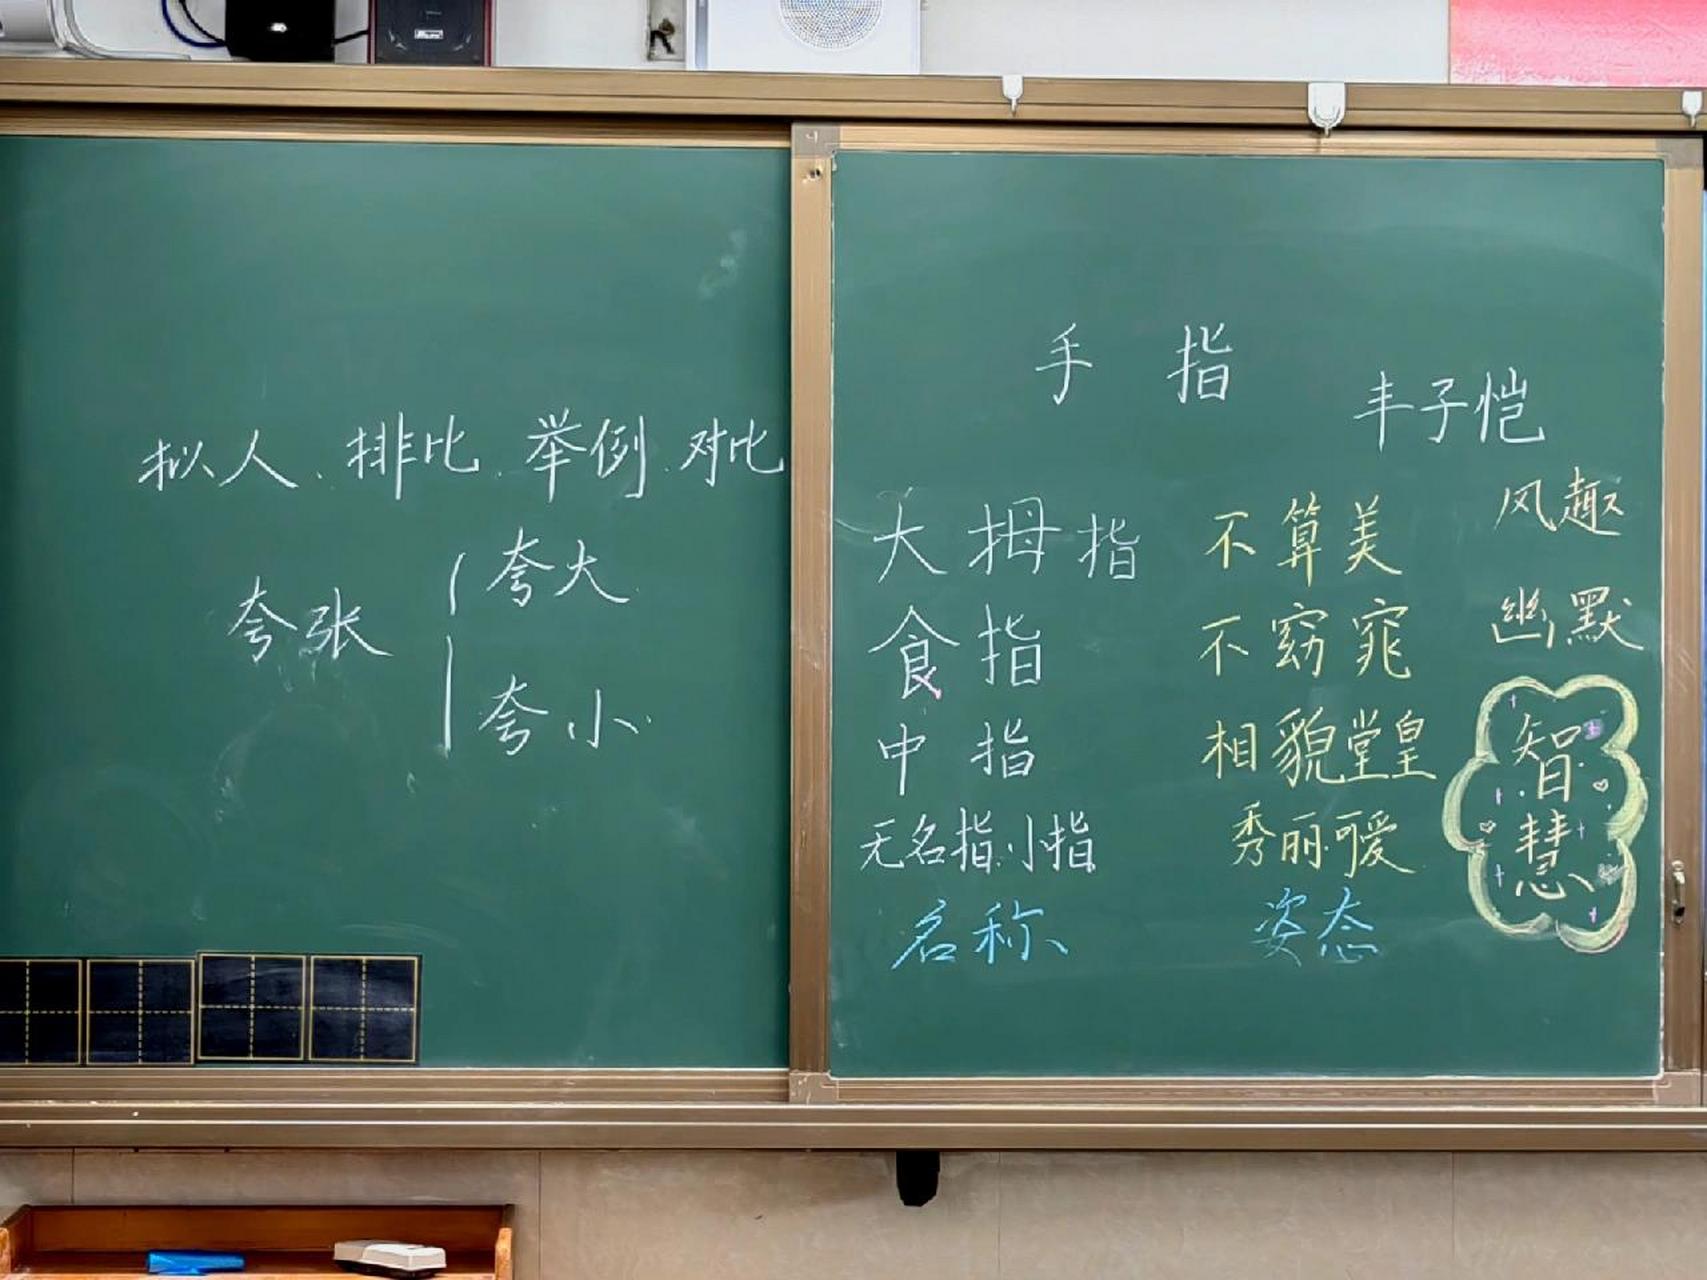 拟人、排比、举例、对比
夸张
夸大
夸小
手指
丰子恺
大拇指 不算美
食指 不窈窕
中指 相貌堂皇
无名指.小指 秀丽.可爱
名称 姿态
风趣
幽默
智慧